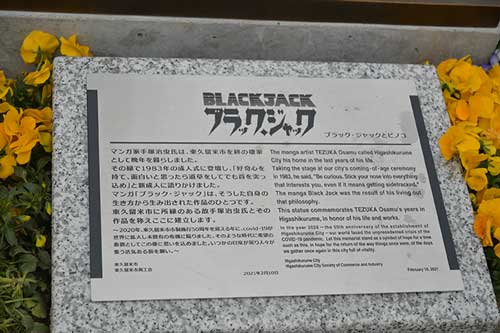 BLACKJACK
ブラック・ジャック
ブラック・ジャックとピノコ
マンガ家手塚治虫氏は、東久留米市を終の棲家
として晩年を暮らしました。
その縁で1983年の成人式に登壇し、「好奇心を
持て、面白いと思ったら道草をしてでも首を突っ
込め」と新成人に語りかけました。
マンガ「ブラック・ジャック」は、そうした自身の
生き方から生み出された作品のひとつです。
東久留米市に所縁のある故手塚治虫氏とその
作品を称えここに建立します。
〜2020年、東久留米市市制施行50周年を迎える年に、covid-19が
世界に蔓延し未曾有の危機に陥りました。そのような時代に希望の
象徴としてこの像に思いを込めました。いつかの日常が戻り人々が
集う活気ある街を願い。〜
東久留米市
東久留米市商工会
2021年2月10日
The manga artist TEZUKA Osamu called Higashikurume
City his home in the last years of his life.
Taking the stage at our city's coming-of-age ceremony
in 1983, he said, "Be curious. Stick your nose into everything
that interests you, even if it means getting sidetracked."
The manga Black Jack was the result of his living out
that philosophy.
This statue commemorates TEZUKA Osamu's years in
Higashikurume, in honor of his life and works.
In the year 2020 – the 50th anniversary of the establishment of
Higashikurume City – our world faced the unprecedented crisis of the
COVID-19 pandemic. Let this memorial stand as a symbol of hope for a time
such as this, in hope for the return of the way things once were, of the days
we gather once again in this city full of vitality.
Higashikurume City
Higashikurume City Society of Commerce and Industry
February 10, 2021